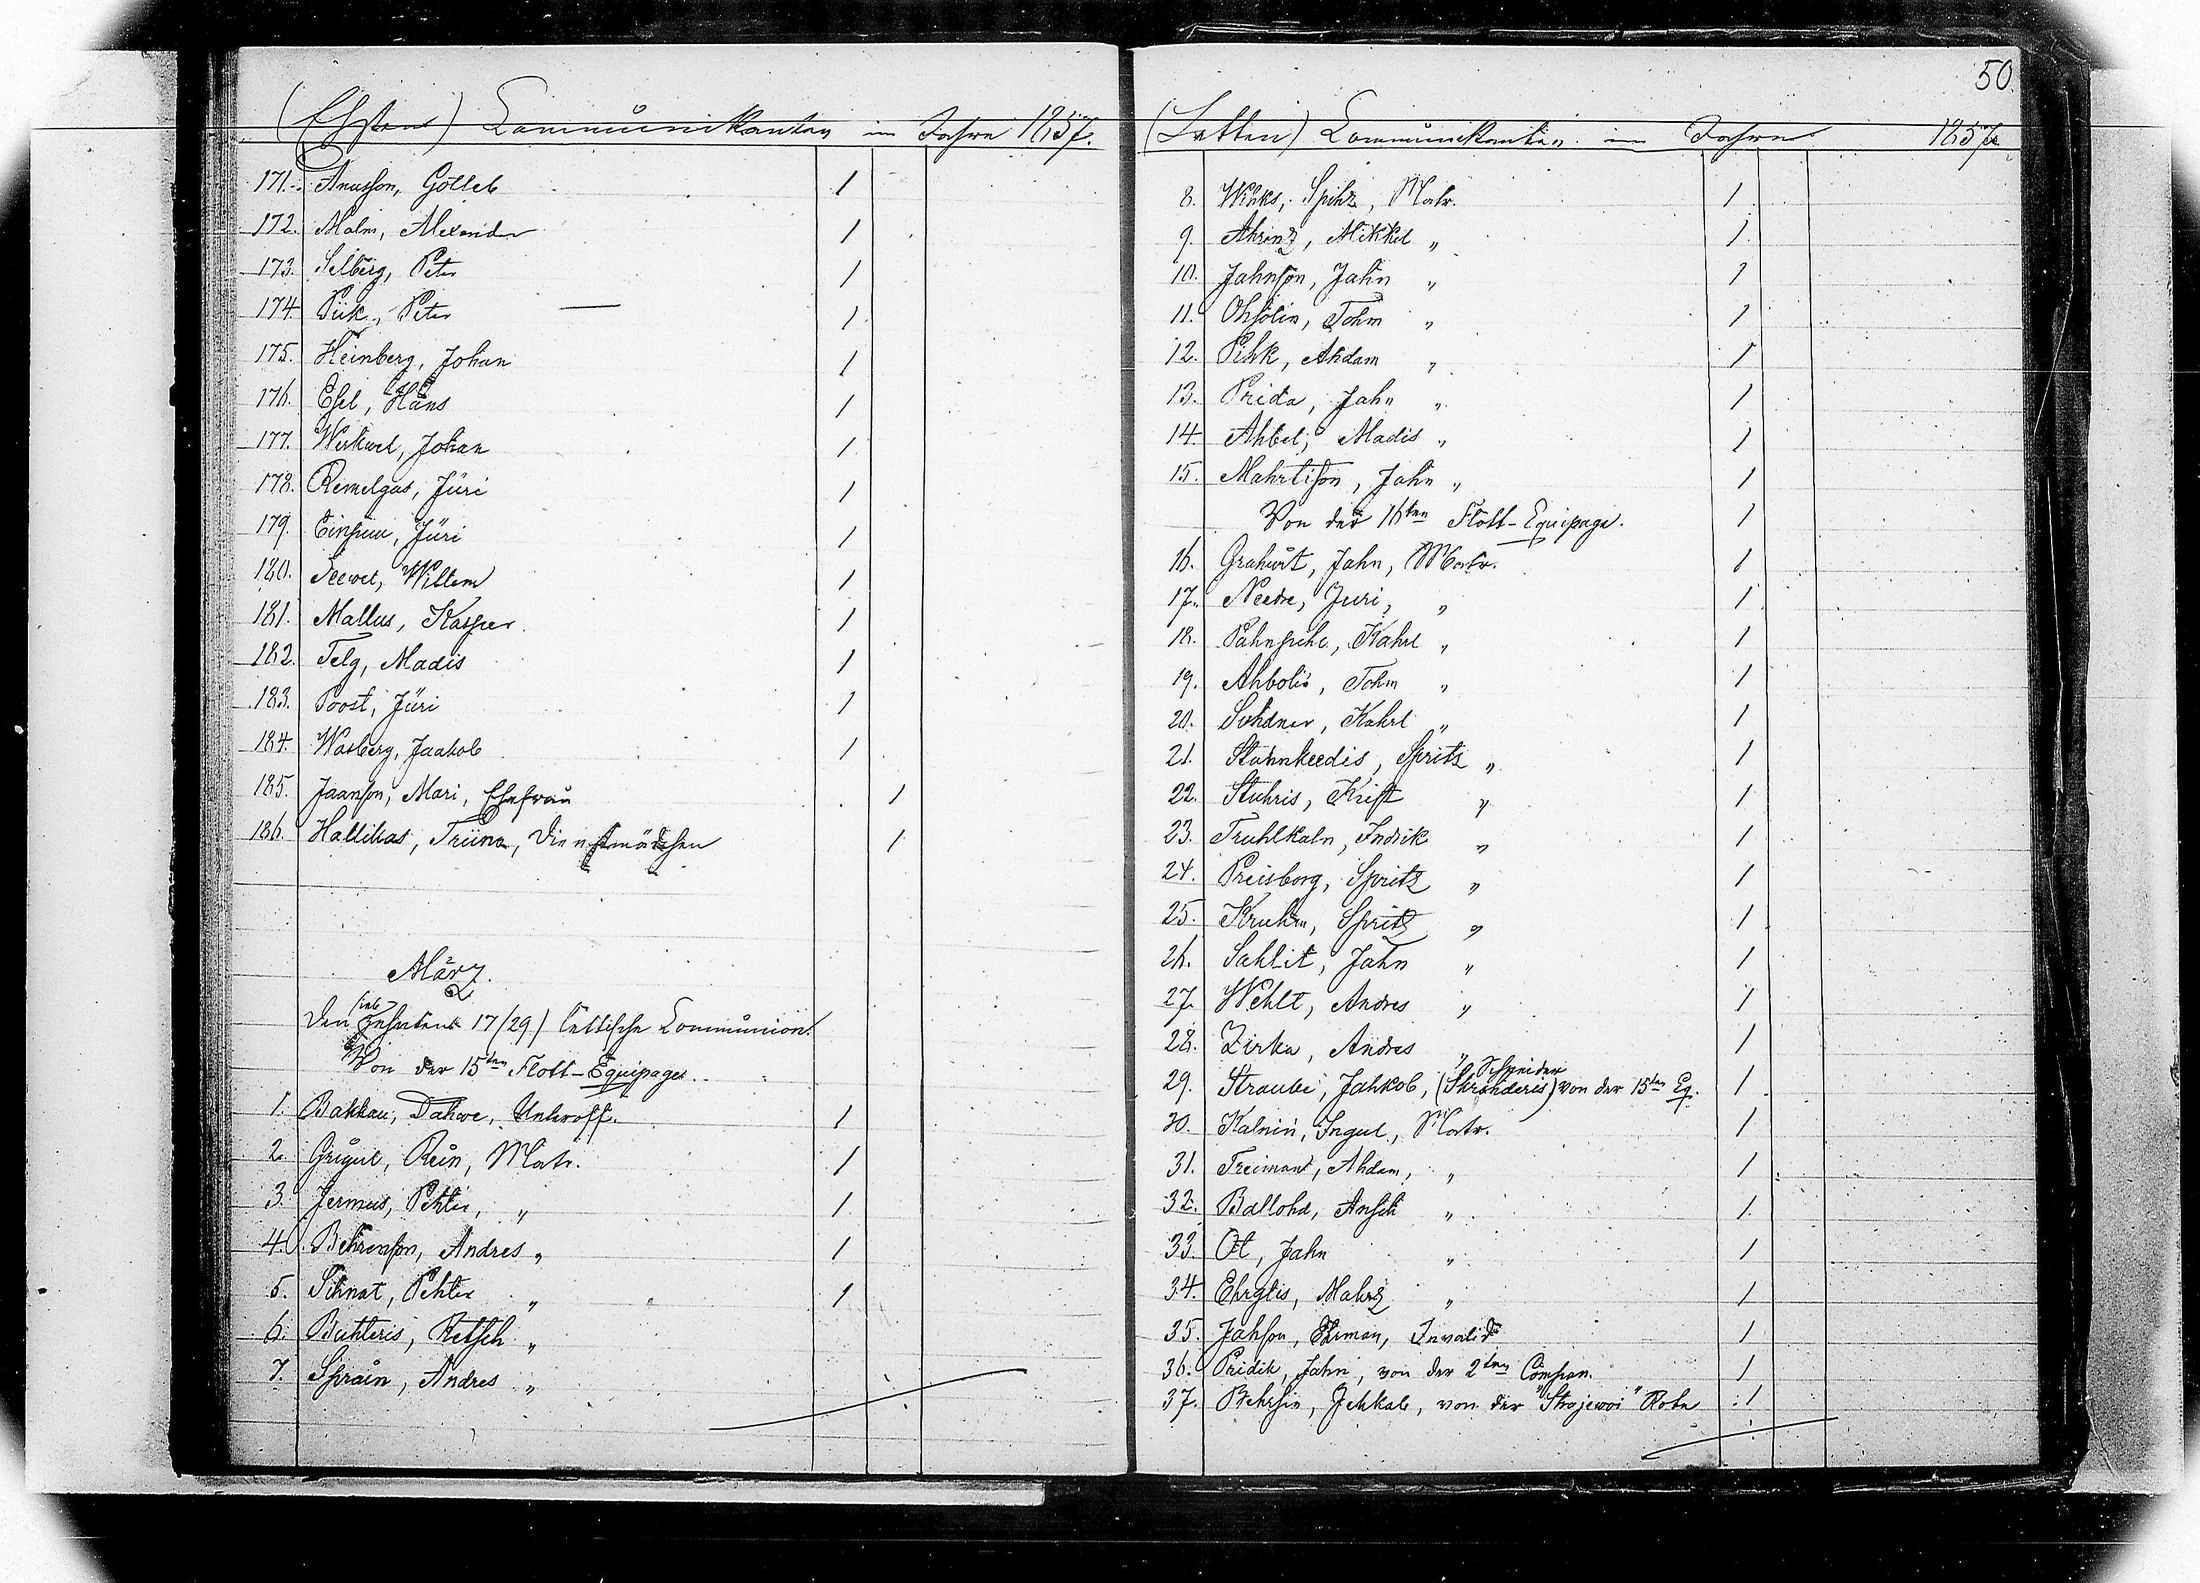 (Ehsten) Communikanten im Jahre 1857.
171. Anusson, Gottleb 1
172. Malm, Alexander 1
173. Selberg, Peter 1
174. Piik, Peter — 1
175. Heinberg, Johan 1
176. Esel, Hans 1
177. Johan 1
178. Remelgas, Jüri 1
179. Jüri 1
180. Teewel, Willem 1
181. Mallus, Kasper 1
182. Telg, Madis 1
183. Poost, Jüri 1
184. Wasberg, Jaakob 1
185. Jaanson, Mari, Ehefrau 1
186. Hallikas, Triino, Dienstmädchen 1
März.
Den 17/(29) Lettische Communion.
Von der 15ten Flott-Equipage.
1. Bakkau, Dahwe, Unteroff. 1
2. Grigul, Rein, Matr. 1
3. Jermus, Pehter, " 1
4. Behrenson, Andres " 1
5. Pehter " 1
6. Buhteris, Retsch "
7. Sprain, Andres "
50.
(Letten) Communikanten im Jahre 1857.
8. Wihks, Spihz, Matr. 1
9. Ahrenz, Mikkel " 1
10. Jahnson, Jahn " 1
11. Ohsolin, Tohm " 1
12. Pihk, Ahdam " 1
13. Prida, Jahn " 1
14. Ahbel, Madis " 1
15. Mahrtison, Jahn " 1
Von der 16ten Flott-Equipage. 1
16. Grahwit, Jahn, Matr. 1
17. Needre, Juri, " 1
18. Kahrl " 1
19. Ahbolis, Tohm " 1
20. Kahrl " 1
21. Stahnkeedis, Spritz " 1
22. Stuhris, Krist " 1
23. Truhlkaln, Indrik " 1
24. Preisborg, Spritz " 1
25. Kruhm, Spritz " 1
26. Sahlit, Jahn " 1
27. Wehlt, Andres " 1
28. Zirka, Andres " 1
29. Straube, Jahkob, Schneider (Skrohderis) von der 15ten Eq. 1
30. Kalnin, Ingul, Matr. 1
31. Treiman, Ahdam, " 1
32. Ballohd, Ansch " 1
33. Ot, Jahn " 1
34. Ehrglis, Mahrz " 1
35. Jahson, Ehrman, Invalide 1
36. Pridik, Jahn, von der 2ten Compan. 1
37. Behrsin, Jehkab, von der "Strojewoi" Rote 1